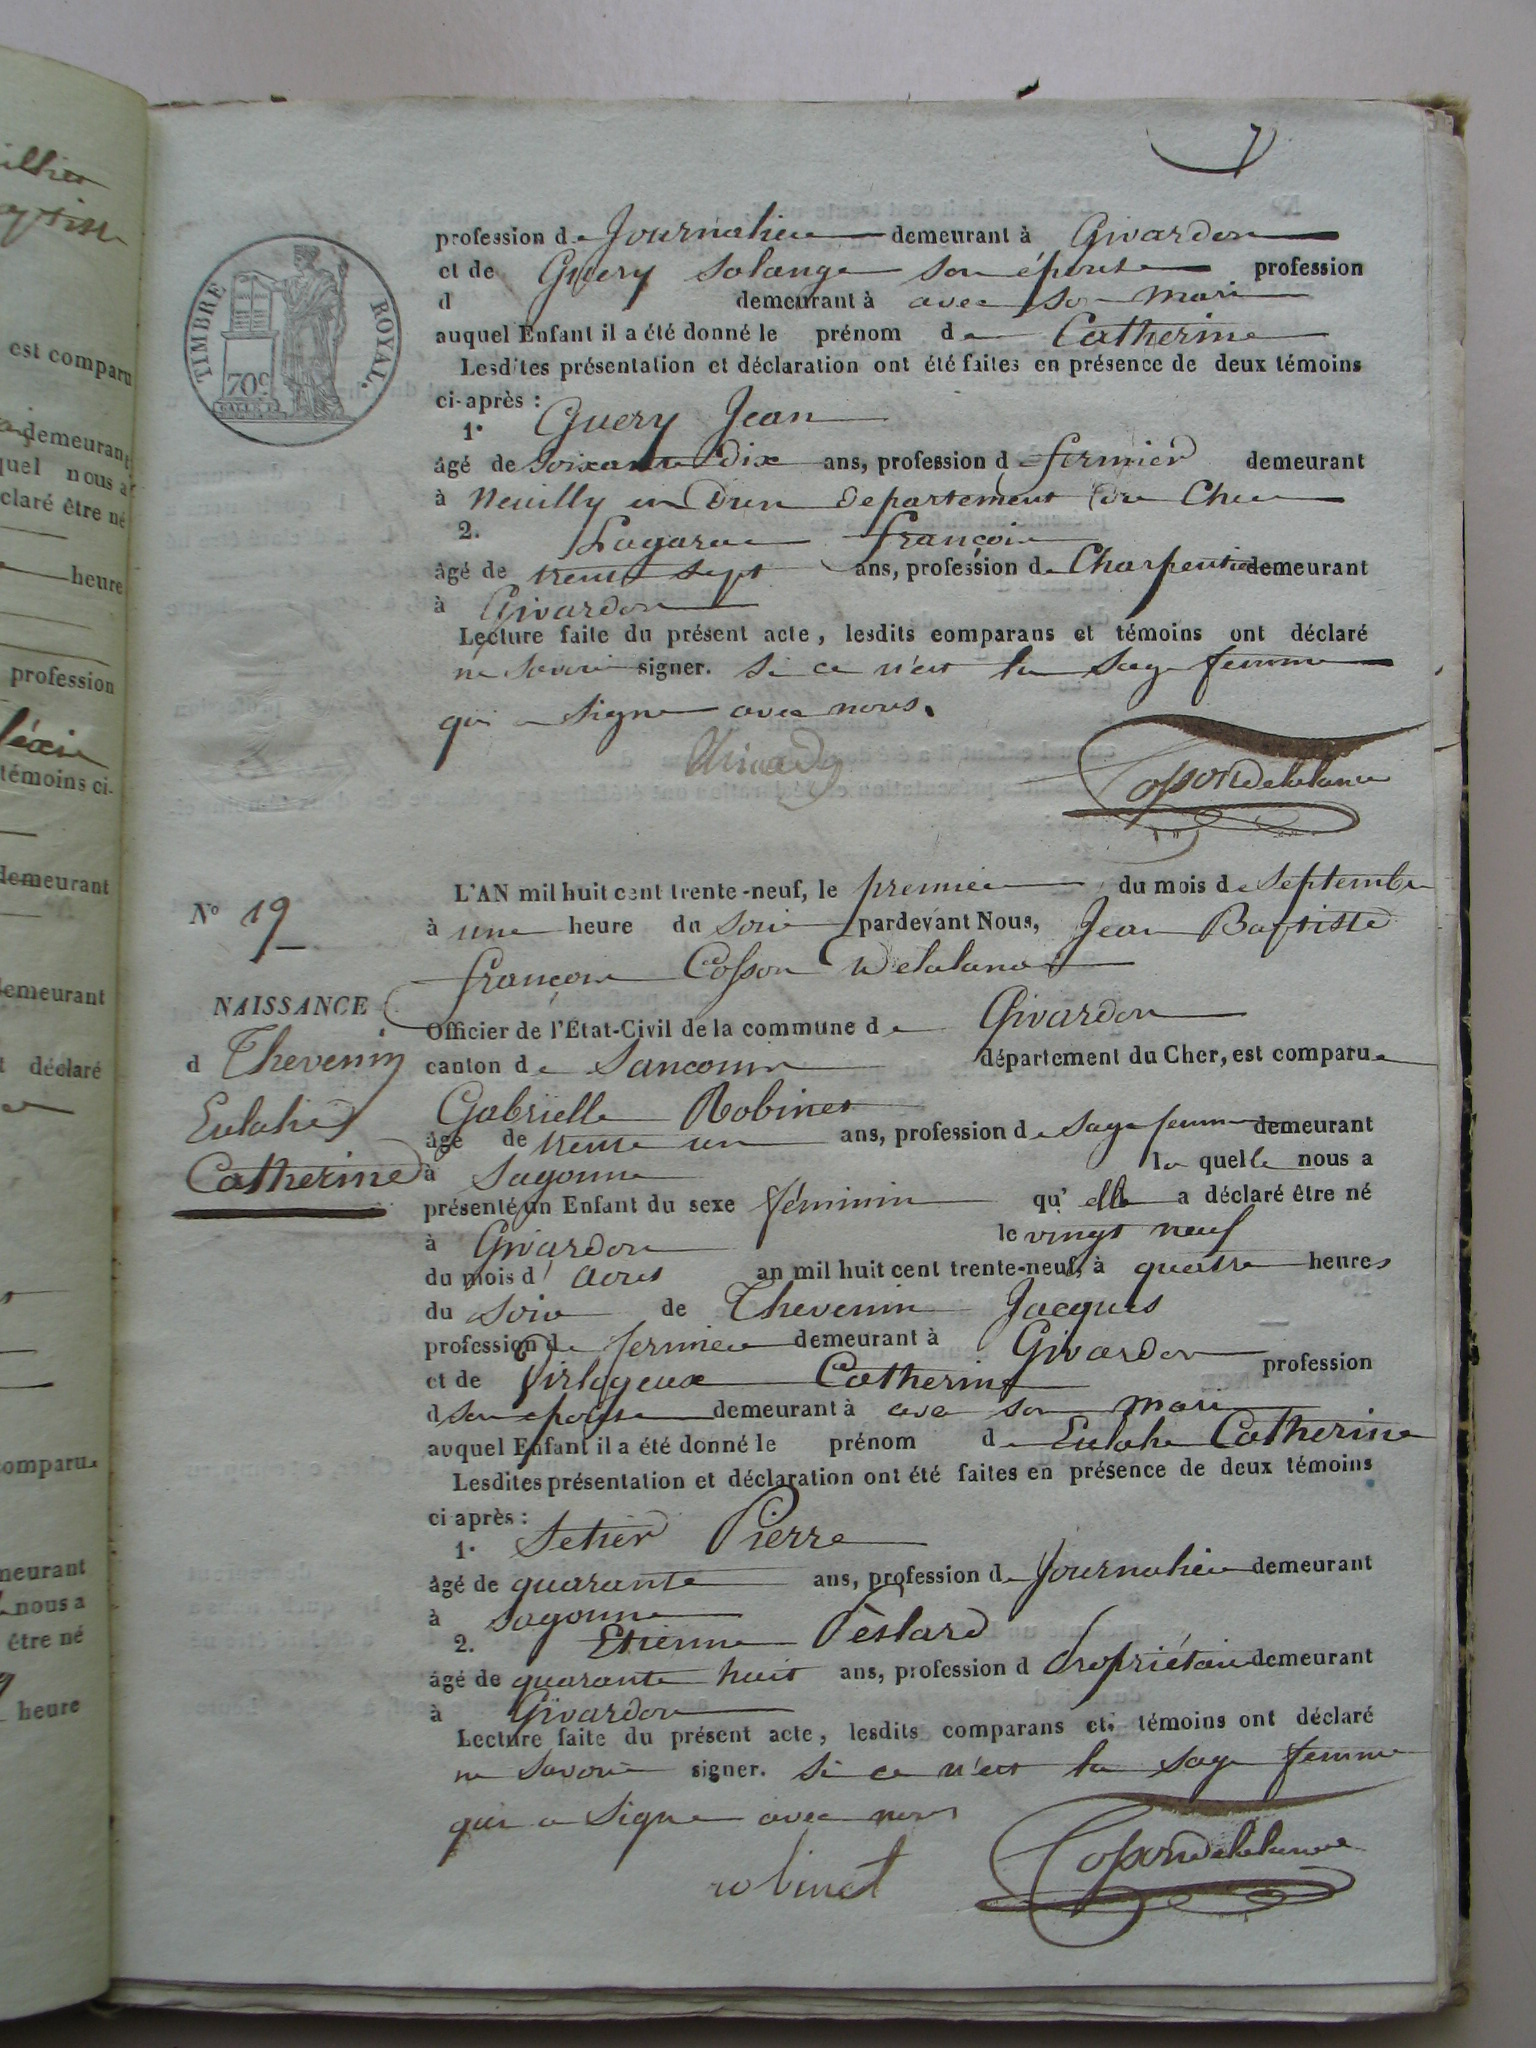 7
TIMBRE ROYAL.
70c
profession de Journalier demeurant à Givardon
et de Guery Solange son épouse profession
d demeurant à avec son mari
auquel Enfant il a été donné le prénom de Catherine
Lesdites présentation et déclaration ont été faites en présence de deux témoins
ci-après :
1° Guery Jean
âgé de Soixante Dix ans, profession de fermier demeurant
à Neuilly en Dun Departement du Cher
2. François
âgé de trente sept ans, profession de Charpentier demeurant
à Givardon
Lecture faite du présent acte, lesdits comparans et témoins ont déclaré
ne Savoir signer. Si ce n'est la Sage femme
qui a Signe avec nous.
Cossondelalande
N° 19
NAISSANCE
d Thevenin
Eulalie
Catherine
L'AN mil huit cent trente-neuf, le premier du mois de Septembre
à une heure du Soir pardevant Nous, Jean Baptiste
françois Cosson Delalande
Officier de l'État-Civil de la commune de Givardon
canton de Sancoins département du Cher, est comparue
Gabrielle Robinet
âgé de trente un ans, profession de Sage femme demeurant
à Sagonne la quelle nous a
présenté un Enfant du sexe féminin qu'elle a déclaré être né
à Givardon le vingt neuf
du mois d' aout an mil huit cent trente-neuf, à quatre heures
du Soir de Thevenin Jacques
profession de fermier demeurant à Givardon
et de Virlogeux Catherine profession
d Son epouse demeurant à avec son mari
auquel Enfant il a été donné le prénom de Eulalie Catherine
Lesdites présentation et déclaration ont été faites en présence de deux témoins
ci après :
1° Setier Pierre
âgé de quarante ans, profession de Journalier demeurant
à Sagonne
2. Etienne
âgé de quarante huit ans, profession d Propriétaire demeurant
à Givardon
Lecture faite du présent acte, lesdits comparans et témoins ont déclaré
ne Savoir signer. Si ce n'est la Sage femme
qui a Signe avec nous
robinet
Cossondelalande